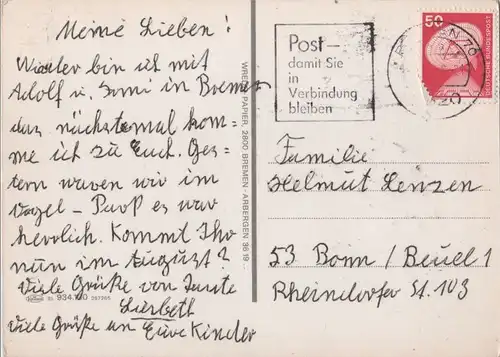 Meine Lieben!
Wieder bin ich mit
Adolf u. in Bremen
das nächstemal kom=
me ich zu Euch. Ges=
tern waren wir im
Vogel - Park es war
herrlich. Kommt Ihr
nun im August?
Viele Grüße von Tante
Liesbeth
Viele Grüße an Eure Kinder
934.700
WREDE PAPIER, 2800 BREMEN - ARBERGEN 36 19
Post -
damit Sie
in
Verbindung
bleiben
50
DEUTSCHE BUNDESPOST
Familie
Helmut Lenzen
53 Bonn / Beuel 1
Rheindorfer St. 103